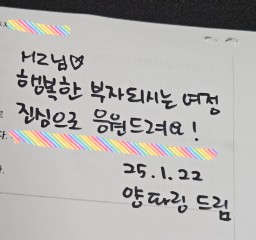 MZ님♡
행복한 부자되시는 여정
진심으로 응원드려요!
다.
25.1.22
양파링 드림